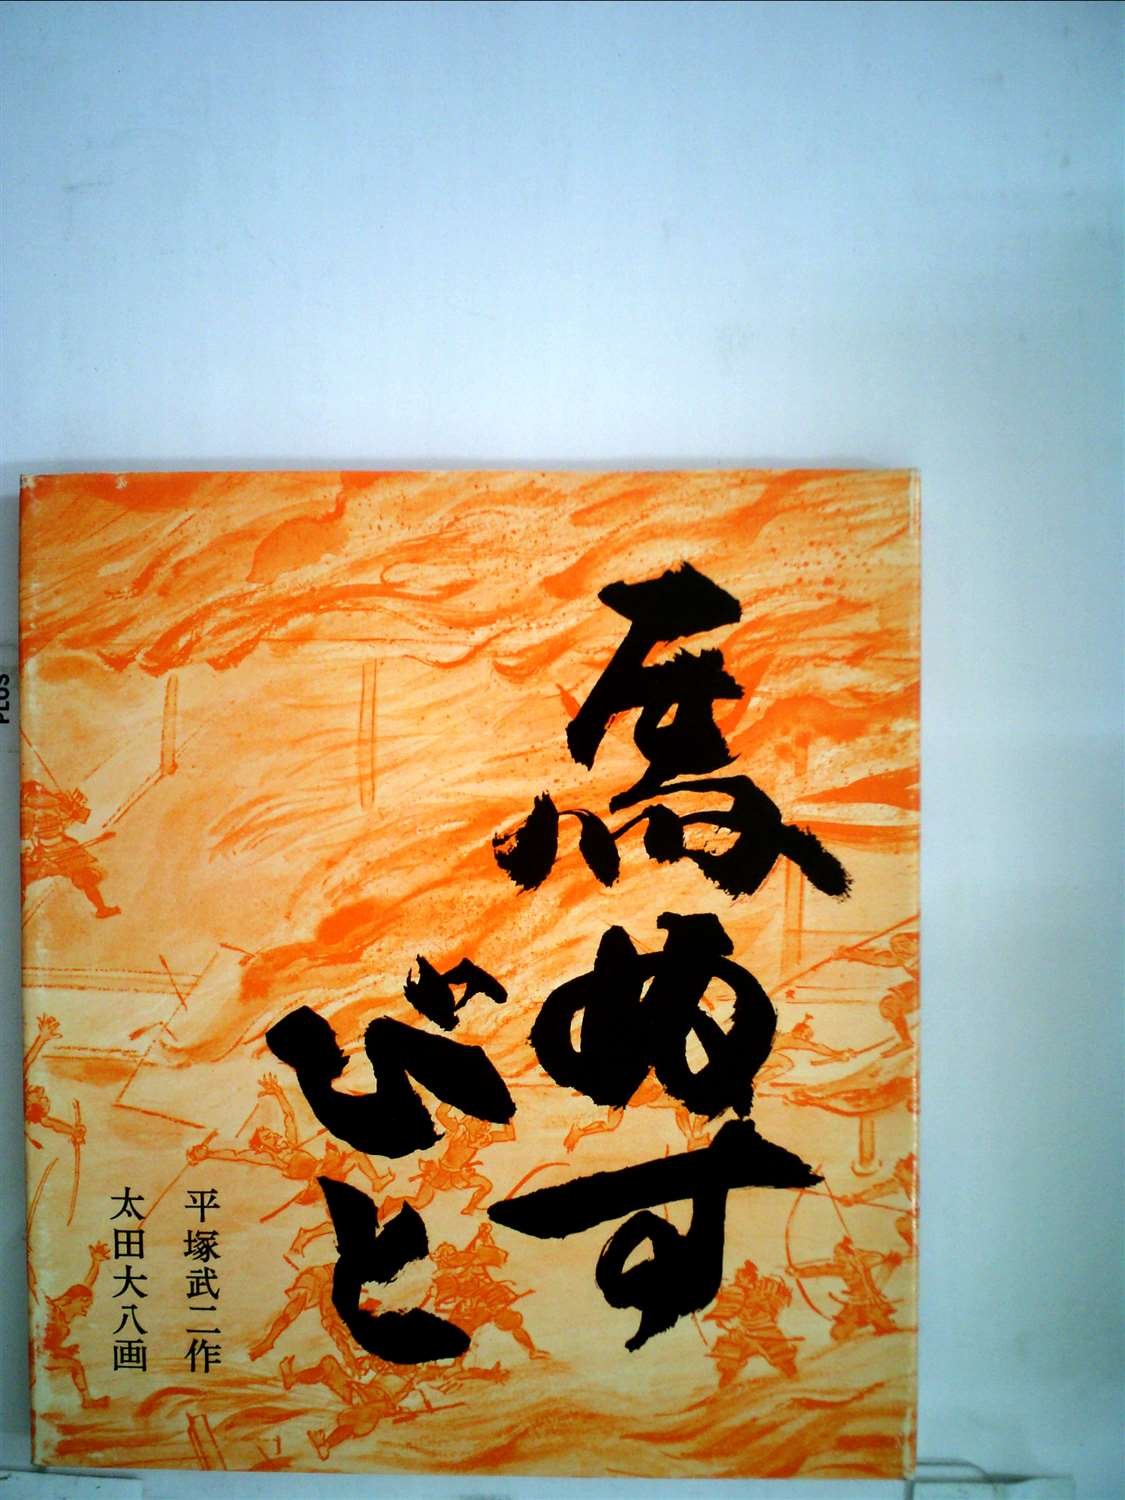 馬ぬす
びと
平塚武二作
太田大八画
PLUS